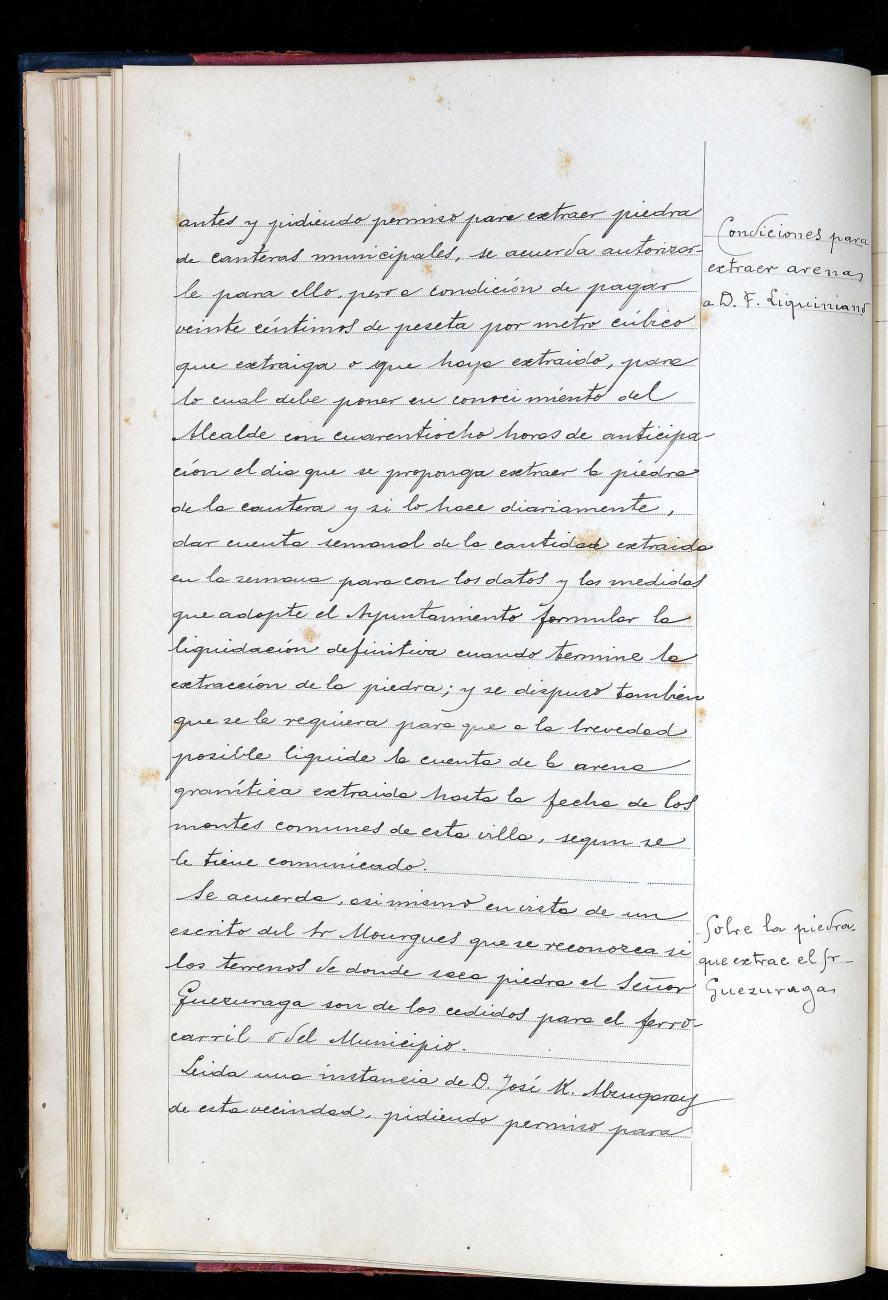 antes y pidiendo permiso para extraer piedra
de canteras municipales, se acuerda autorizar-
le para ello, pero a condición de pagar
veinte céntimos de peseta por metro cúbico
que extraiga o que haya extraido, para
lo cual debe poner en conocimiento del
Alcalde con cuarentiocho horas de anticipa-
ción el dia que se proponga extraer la piedra
de la cantera y si lo hace diariamente,
dar cuenta semanal de la cantidad extraida
en la semana para con los datos y las medidas
que adopte el Ayuntamiento formular la
liquidación definitiva cuando termine la
extracción de la piedra; y se dispuso tambien
que se le requiera para que a la brevedad
posible liquide la cuenta de la arena
granítica extraida hasta la fecha de los
montes comunes de esta villa, segun se
le tiene comunicado.
Se acuerda, asi mismo en vista de un
escrito del Sr Mourgues que se reconozca si
los terrenos de donde saca piedra el Señor
Guezuraga son de los cedidos para el ferro-
carril o del Municipio.
Leida una instancia de D. José K.
de esta vecindad, pidiendo permiso para
Condiciones para
extraer arena
a D. F. Liquiniano
Sobre la piedra
que extrae el Sr
Guezuraga